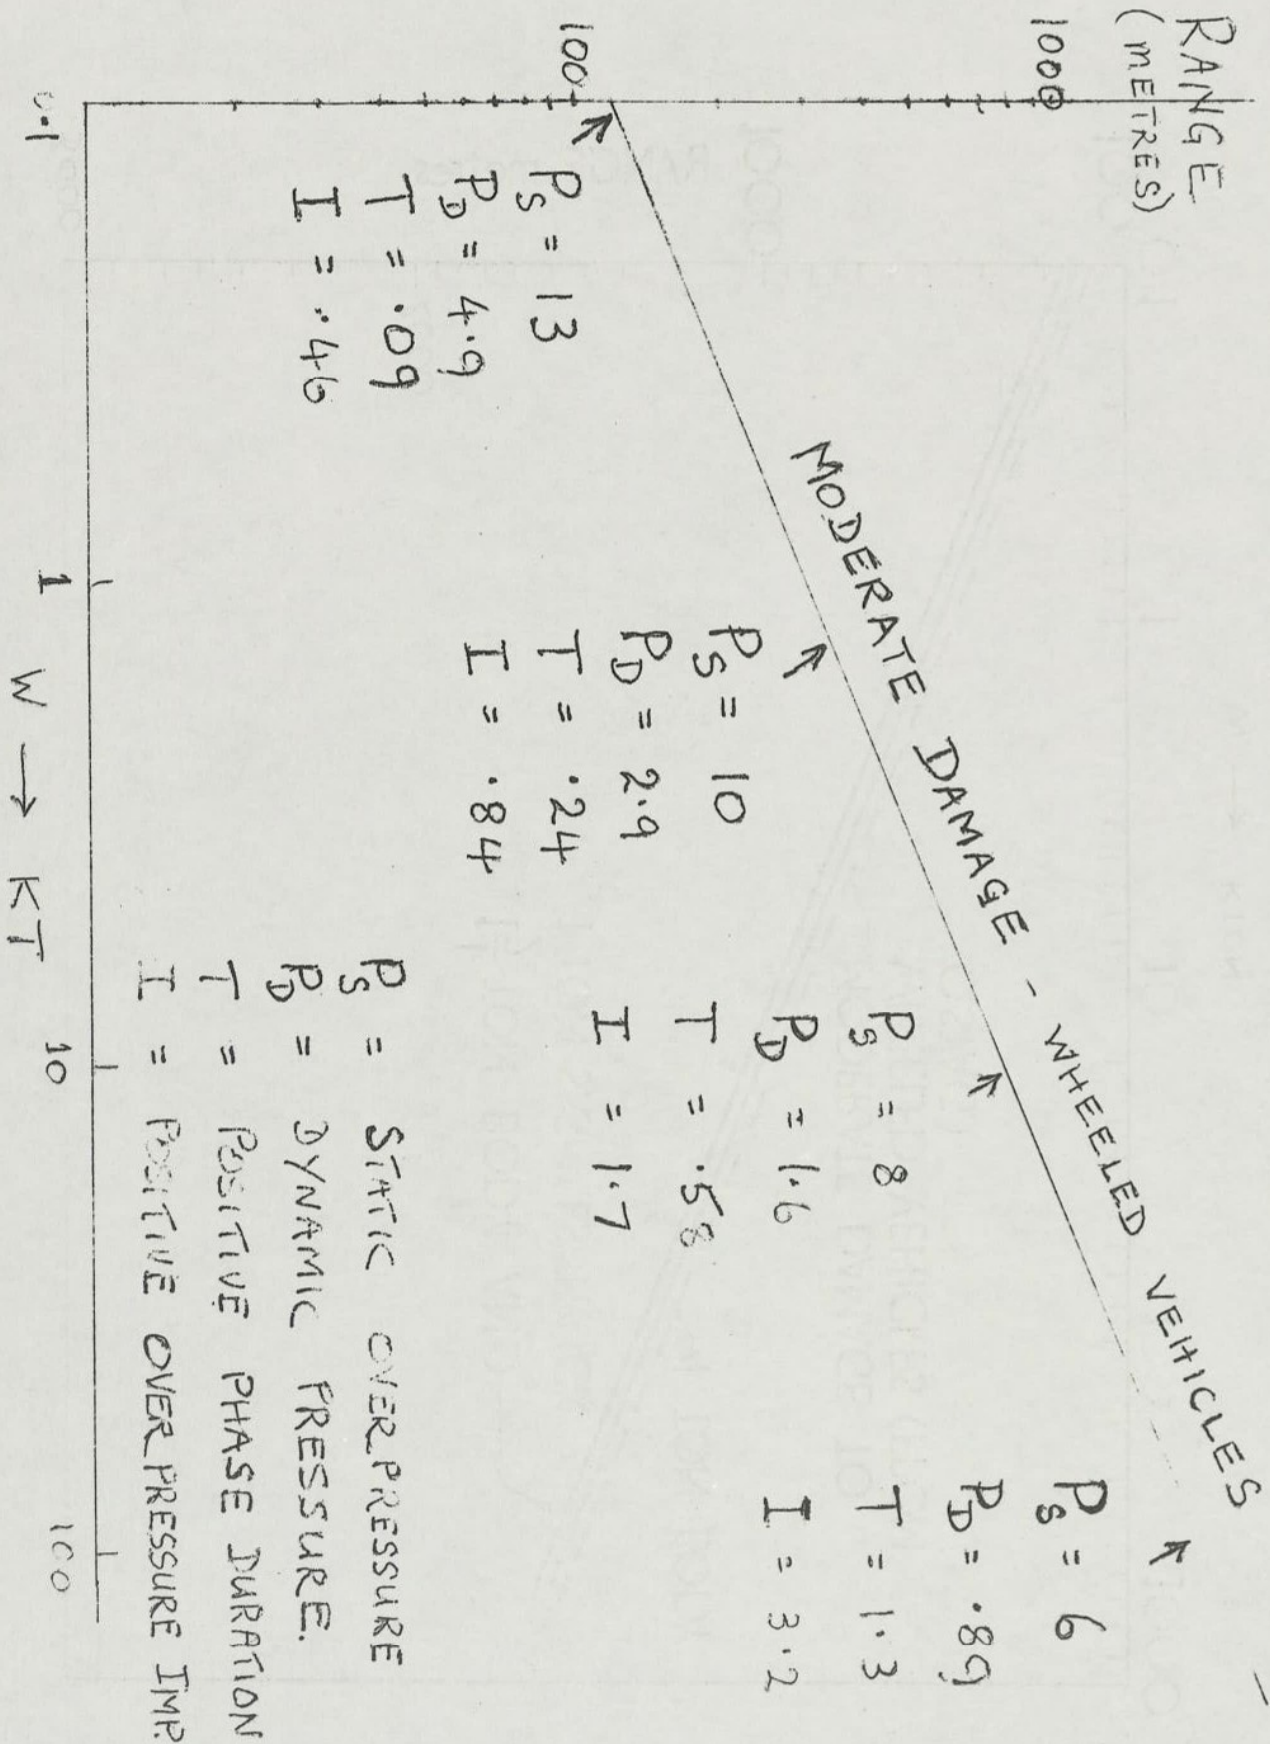 RANGE
(METRES)
1000
100
MODERATE DAMAGE - WHEELED VEHICLES
PS = 13
PD = 4.9
T = .09
I = .46
PS = 10
PD = 2.9
T = .24
I = .84
PS = 8
PD = 1.6
T = .58
I = 1.7
PS = 6
PD = .89
T = 1.3
I = 3.2
PS = STATIC OVERPRESSURE
PD = DYNAMIC PRESSURE.
T = POSITIVE PHASE DURATION
I = POSITIVE OVERPRESSURE IMP.
0.1 1 10 100
W → KT